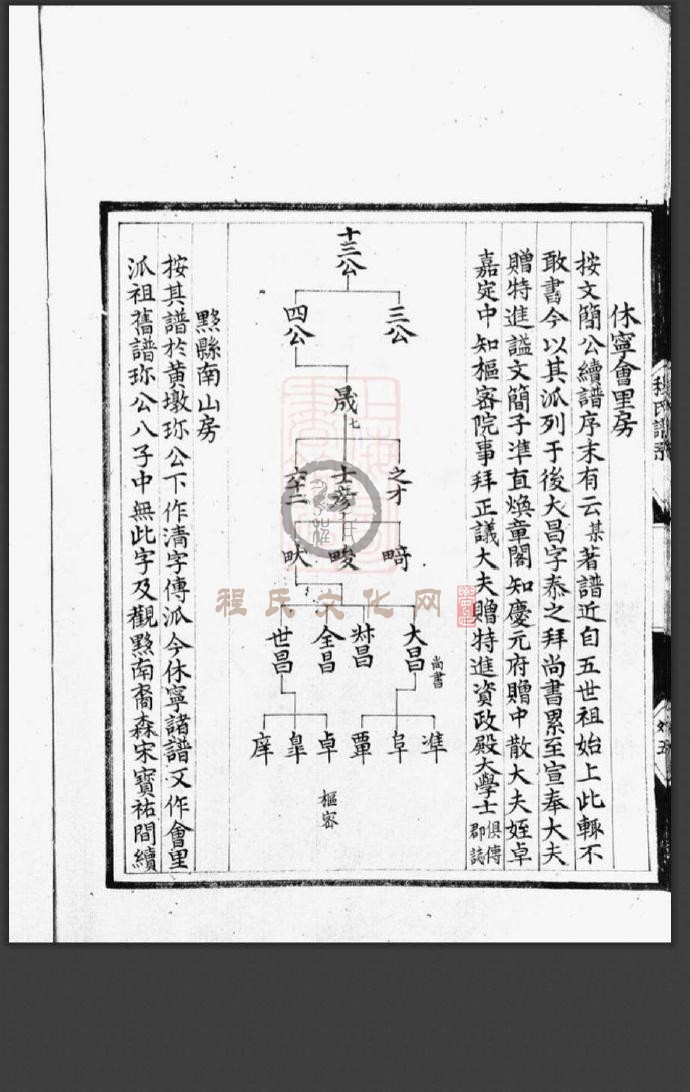 休寧會里房
按文簡公續譜序末有云某著譜近自五世祖始上此輒不
敢書今以其派列于後大昌字泰之拜尚書累至宣奉大夫
贈特進謚文簡子準直煥章閣知慶元府贈中散大夫姪卓
嘉定中知樞密院事拜正議大夫贈特進資政殿大學士俱傳郡誌
十三公
三公
四公
晟
七
之才
士彥
畸
畯
畎
大昌
尚書
昌
全昌
世昌
準
阜
覃
卓
皐
庠
樞密
黟縣南山房
按其譜於黄墩珎公下作清字傳派今休寧諸譜又作會里
派祖舊譜珎公八子中無此字及觀黟南裔森宋寳祐間續
程氏文化网